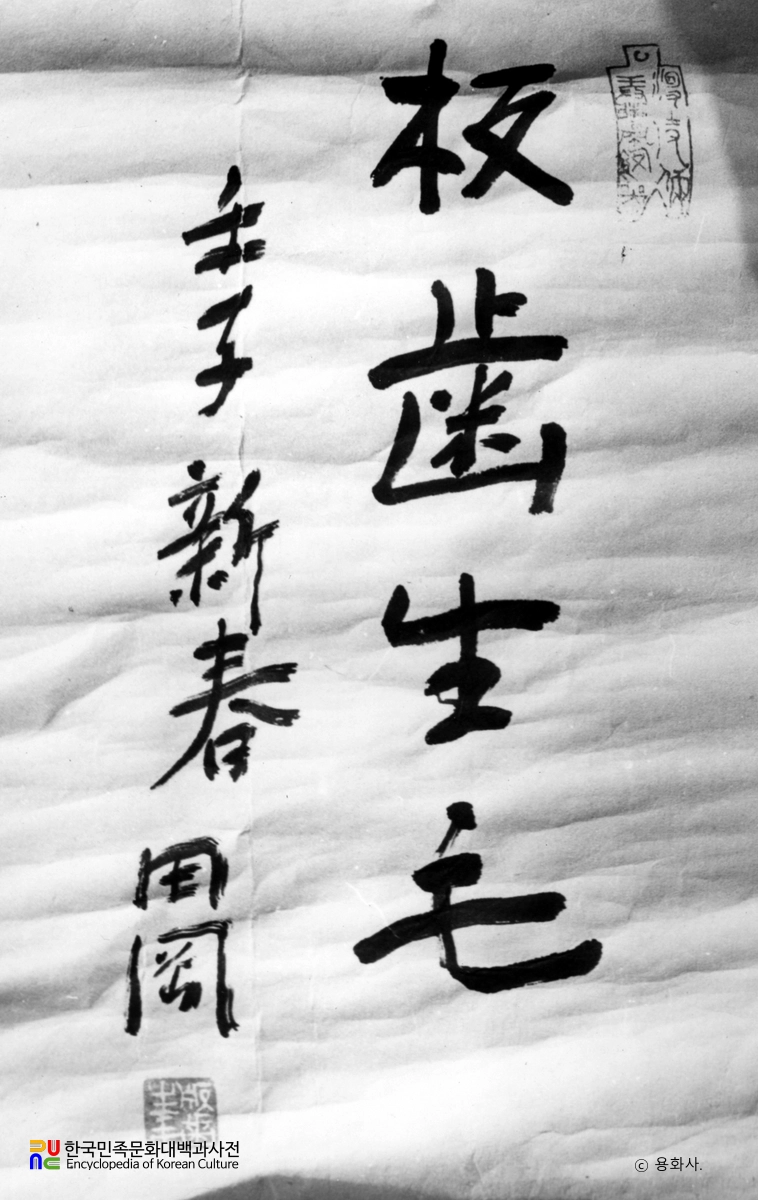 板歯生毛
壬子 新春 田岡
한국민족문화대백과사전
Encyclopedia of Korean Culture
ⓒ 용화사.